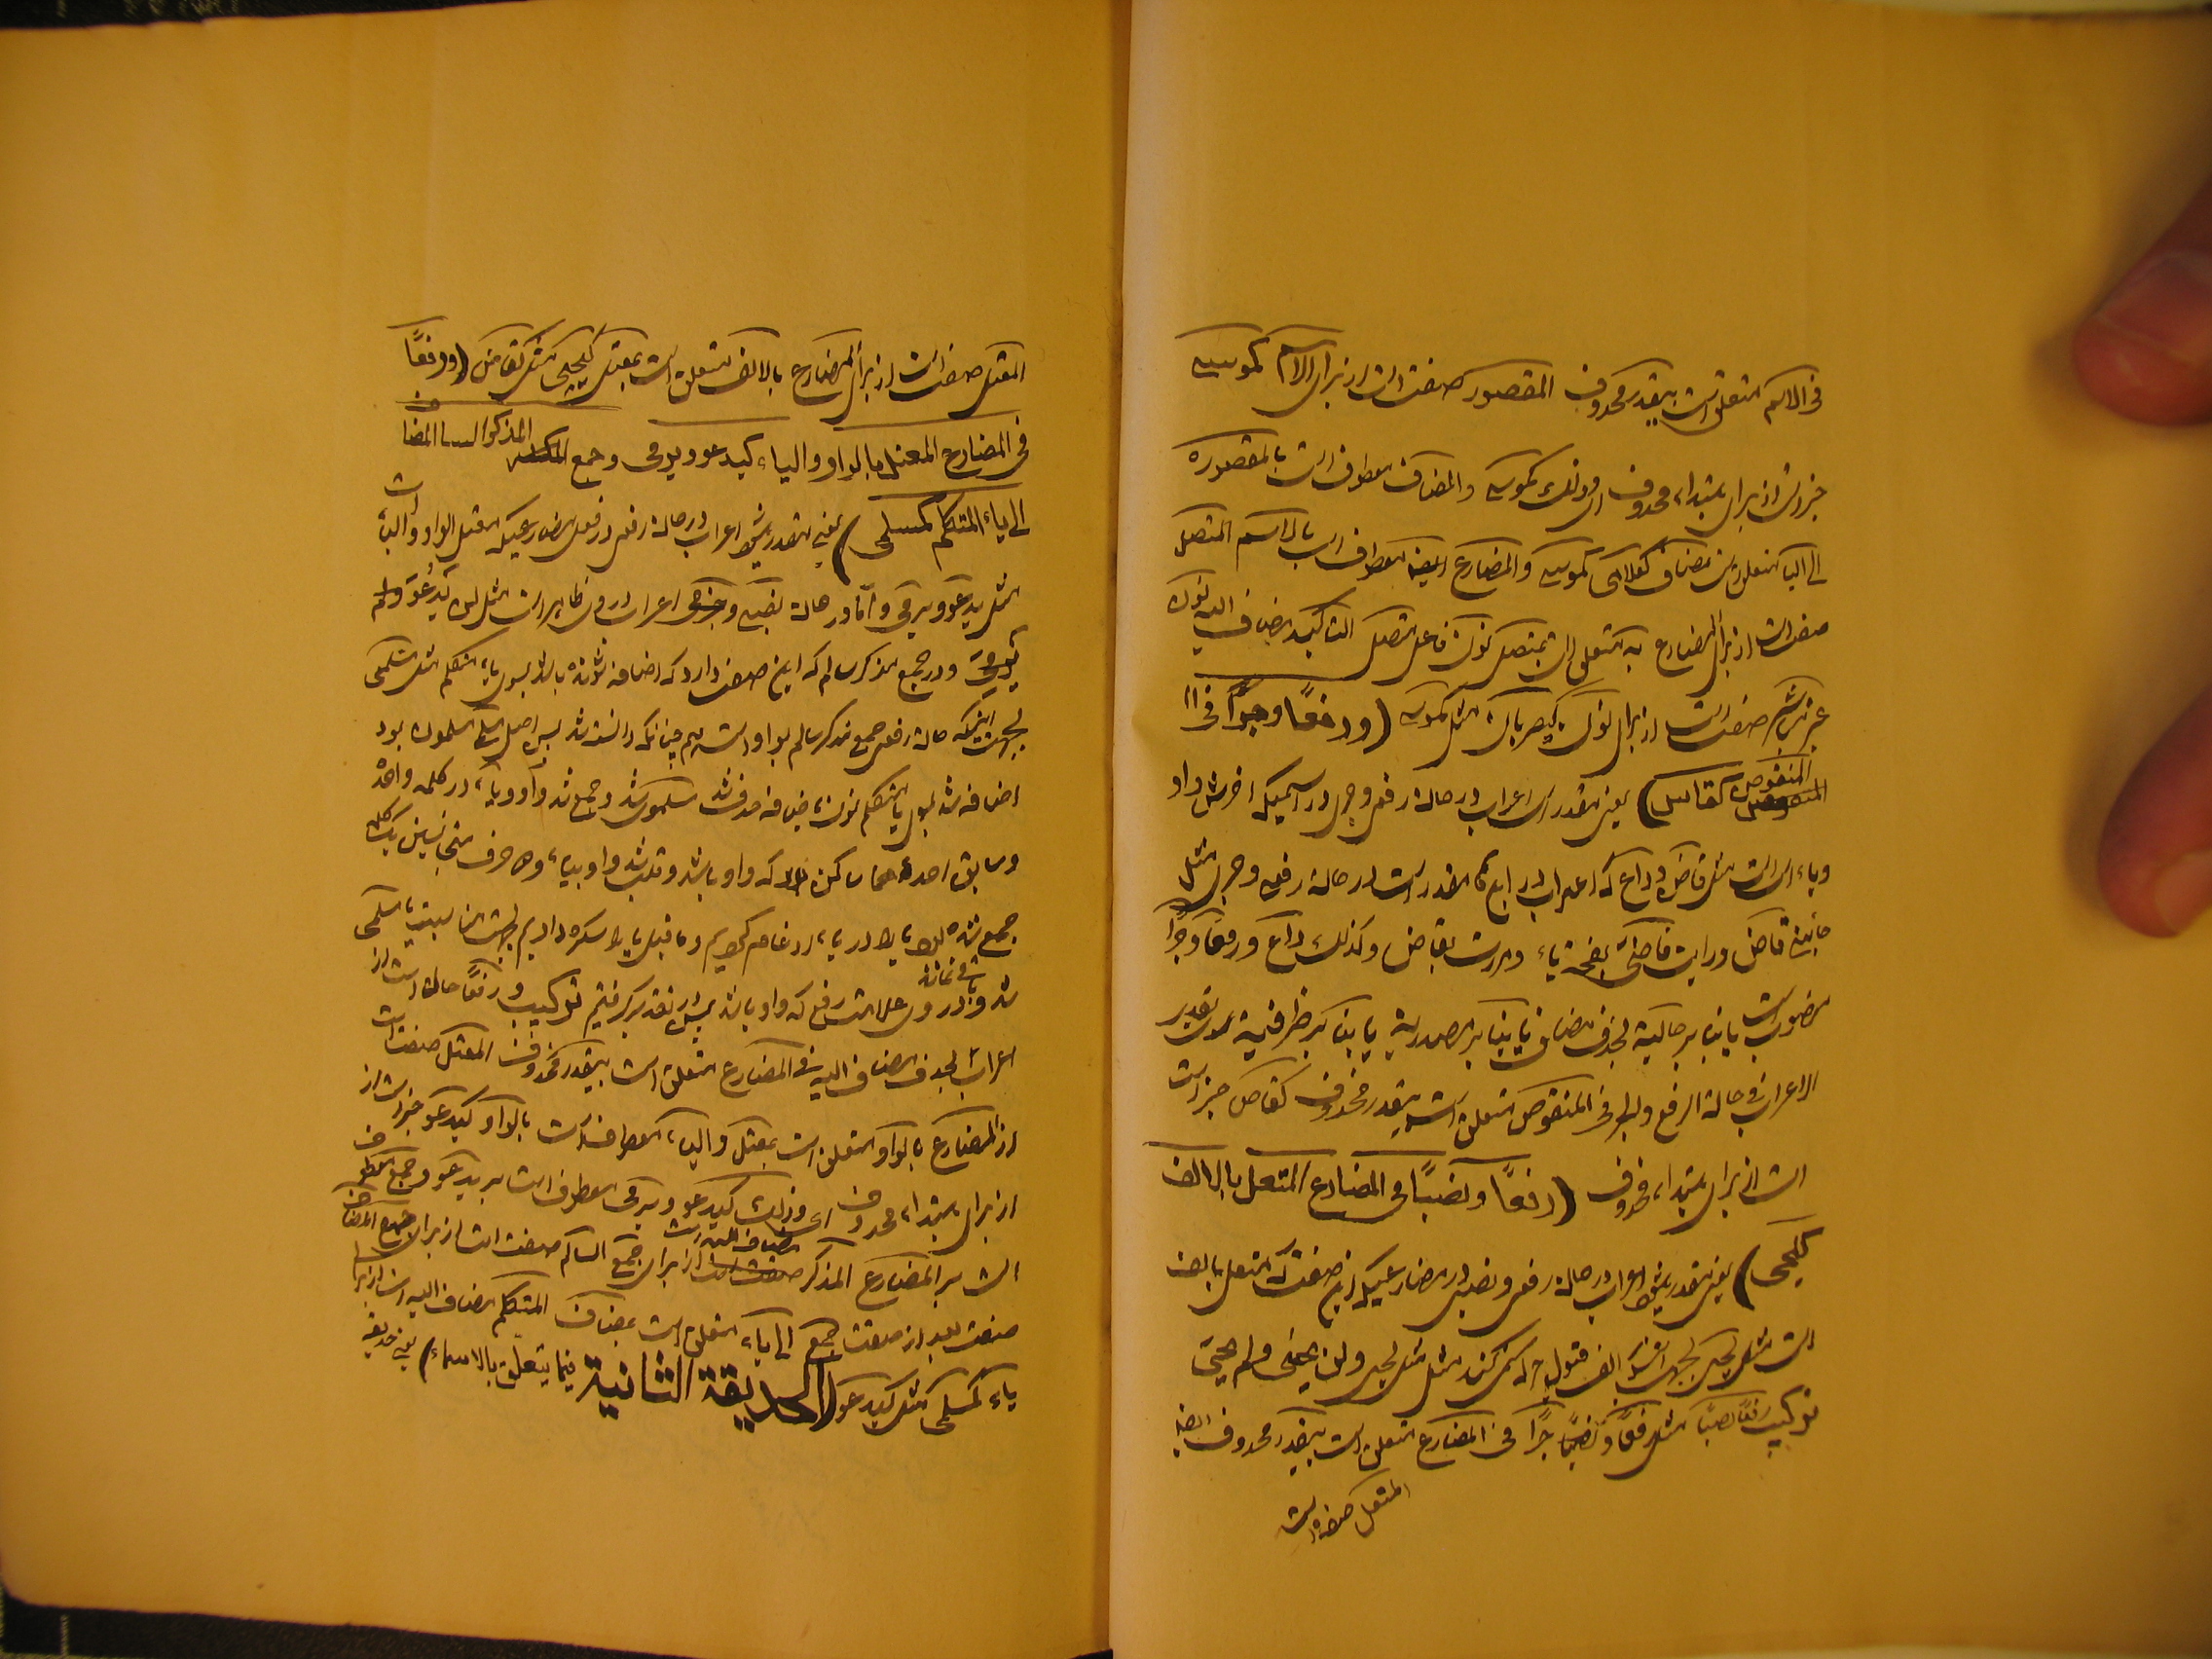 فی الاسم متعلق است بیقدر محذوف المقصور صفت است از برای الاسم کموسی
خبر است از برای مبتداء محذوف ای وذلک کموسی والمضاف معطوف است بالمقصور
الی الیا متعلق است بمضاف کغلامی کموسی والمضارع ایضا معطوف است بالاسم المتصل
صفت است از برای المضارع به متعلق است بمتصل نون فاعل متصل التاکید مضاف الیه نون
غیر مباشر صفت است از برای نون کیضربان مثل کموسی (ورفعًا وجرًّا فی
المنقوص کقاض) یعنی مقدر است اعراب در حالة رفعی وجری در اسمیکه اخرش واو
ویاء است مثل قاض وداع که اعراب در اینها مقدر است در حالة رفعی وجری مثل
جائنی قاض ورایت قاضیًا بفتحه یاء ومررت بقاض وکذلک داع ورفعًا وجرًّا
منصوب است یا بنا بر حالیة بحذف مضاف یا بنا بر مصدریة یا بنا بر ظرفیة بتقدیر
الاعراب فی حالة الرفع والجر فی المنقوص متعلق است بیقدر محذوف کقاض خبر است
است از برای مبتداء محذوف (رفعًا ونصبًا فی المضارع المعتل بالالف
کیحیی) یعنی مقدر میشود اعراب در حالة رفعی ونصبی در مضارعیکه این صفت که معتل بالف
است مثل یحیی بجهت اینکه الف قبول حرکت نمی کند مثل یحیی ولن یحیی ولم یحی
ترکیب رفعًا نصبًا مثل رفعًا ونصبًا جرًّا فی المضارع متعلق است بیقدر محذوف ایضا
المعتل صفة است
المعتل صفت است از برای المضارع بالالف متعلق است بمعتل کیحیی مثل کقاض (ورفعًا
فی المضارع المعتل بالواو والیاء کیدعو ویرمی وجمع المذکر السالم المضاف
الی یاء المتکلم کمسلمی) یعنی مقدر میشود اعراب در حالة رفعی در فعل مضارعیکه معتل الواو والیاء است
مثل یدعو ویرمی واما در حالة نصبی وجزمی اعراب در وی ظاهر است مثل لن یدعو ولم
یرمی ودر جمع مذکر سالم که این صفت دارد که اضافه شده باشد بسوی یاء متکلم مثل مسلمی
بجهت اینکه حالة رفعی جمع مذکر سالم بواو است هم چنانکه دانسته شد پس اصل مسلمی مسلمون بود
اضافه شد بسوی یاء متکلم نون باضافه حذف شد مسلموی شد وجمع شد واو ویاء در کلمه واحده
وسابق احدهما ساکن که واو باشد وقلب شد واو بیاء و حرف متجانسین یک کلمه
جمع شده یاء را در یاء ادغام کردیم وماقبل یاء را کسره دادیم بجهت مناسبت یاء مسلمی
شد ودر وی علامت رفع که واو باشد در تقدیر گرفتیم ترکیب ورفعًا حال است از
اعراب بحذف مضاف الیه فی المضارع متعلق است بیقدر محذوف المعتل صفت است
از المضارع بالواو متعلق است بمعتل والیاء معطوف است بالواو کیدعو خبر است از
از برای مبتداء محذوف ای وذلک کیدعو ویرمی معطوف است بر یدعو وجمع معطوف
است بر المضارع المذکر مضاف الیه است از برای جمع السالم صفت است از برای جمع المضاف
صفت بعد از صفت جمع الی یاء متعلق است بمضاف المتکلم مضاف الیه است از برای
یاء کمسلمی مثل کیدعو (الحدیقة الثانیة فیما یتعلق بالاسماء) یعنی حدیقه